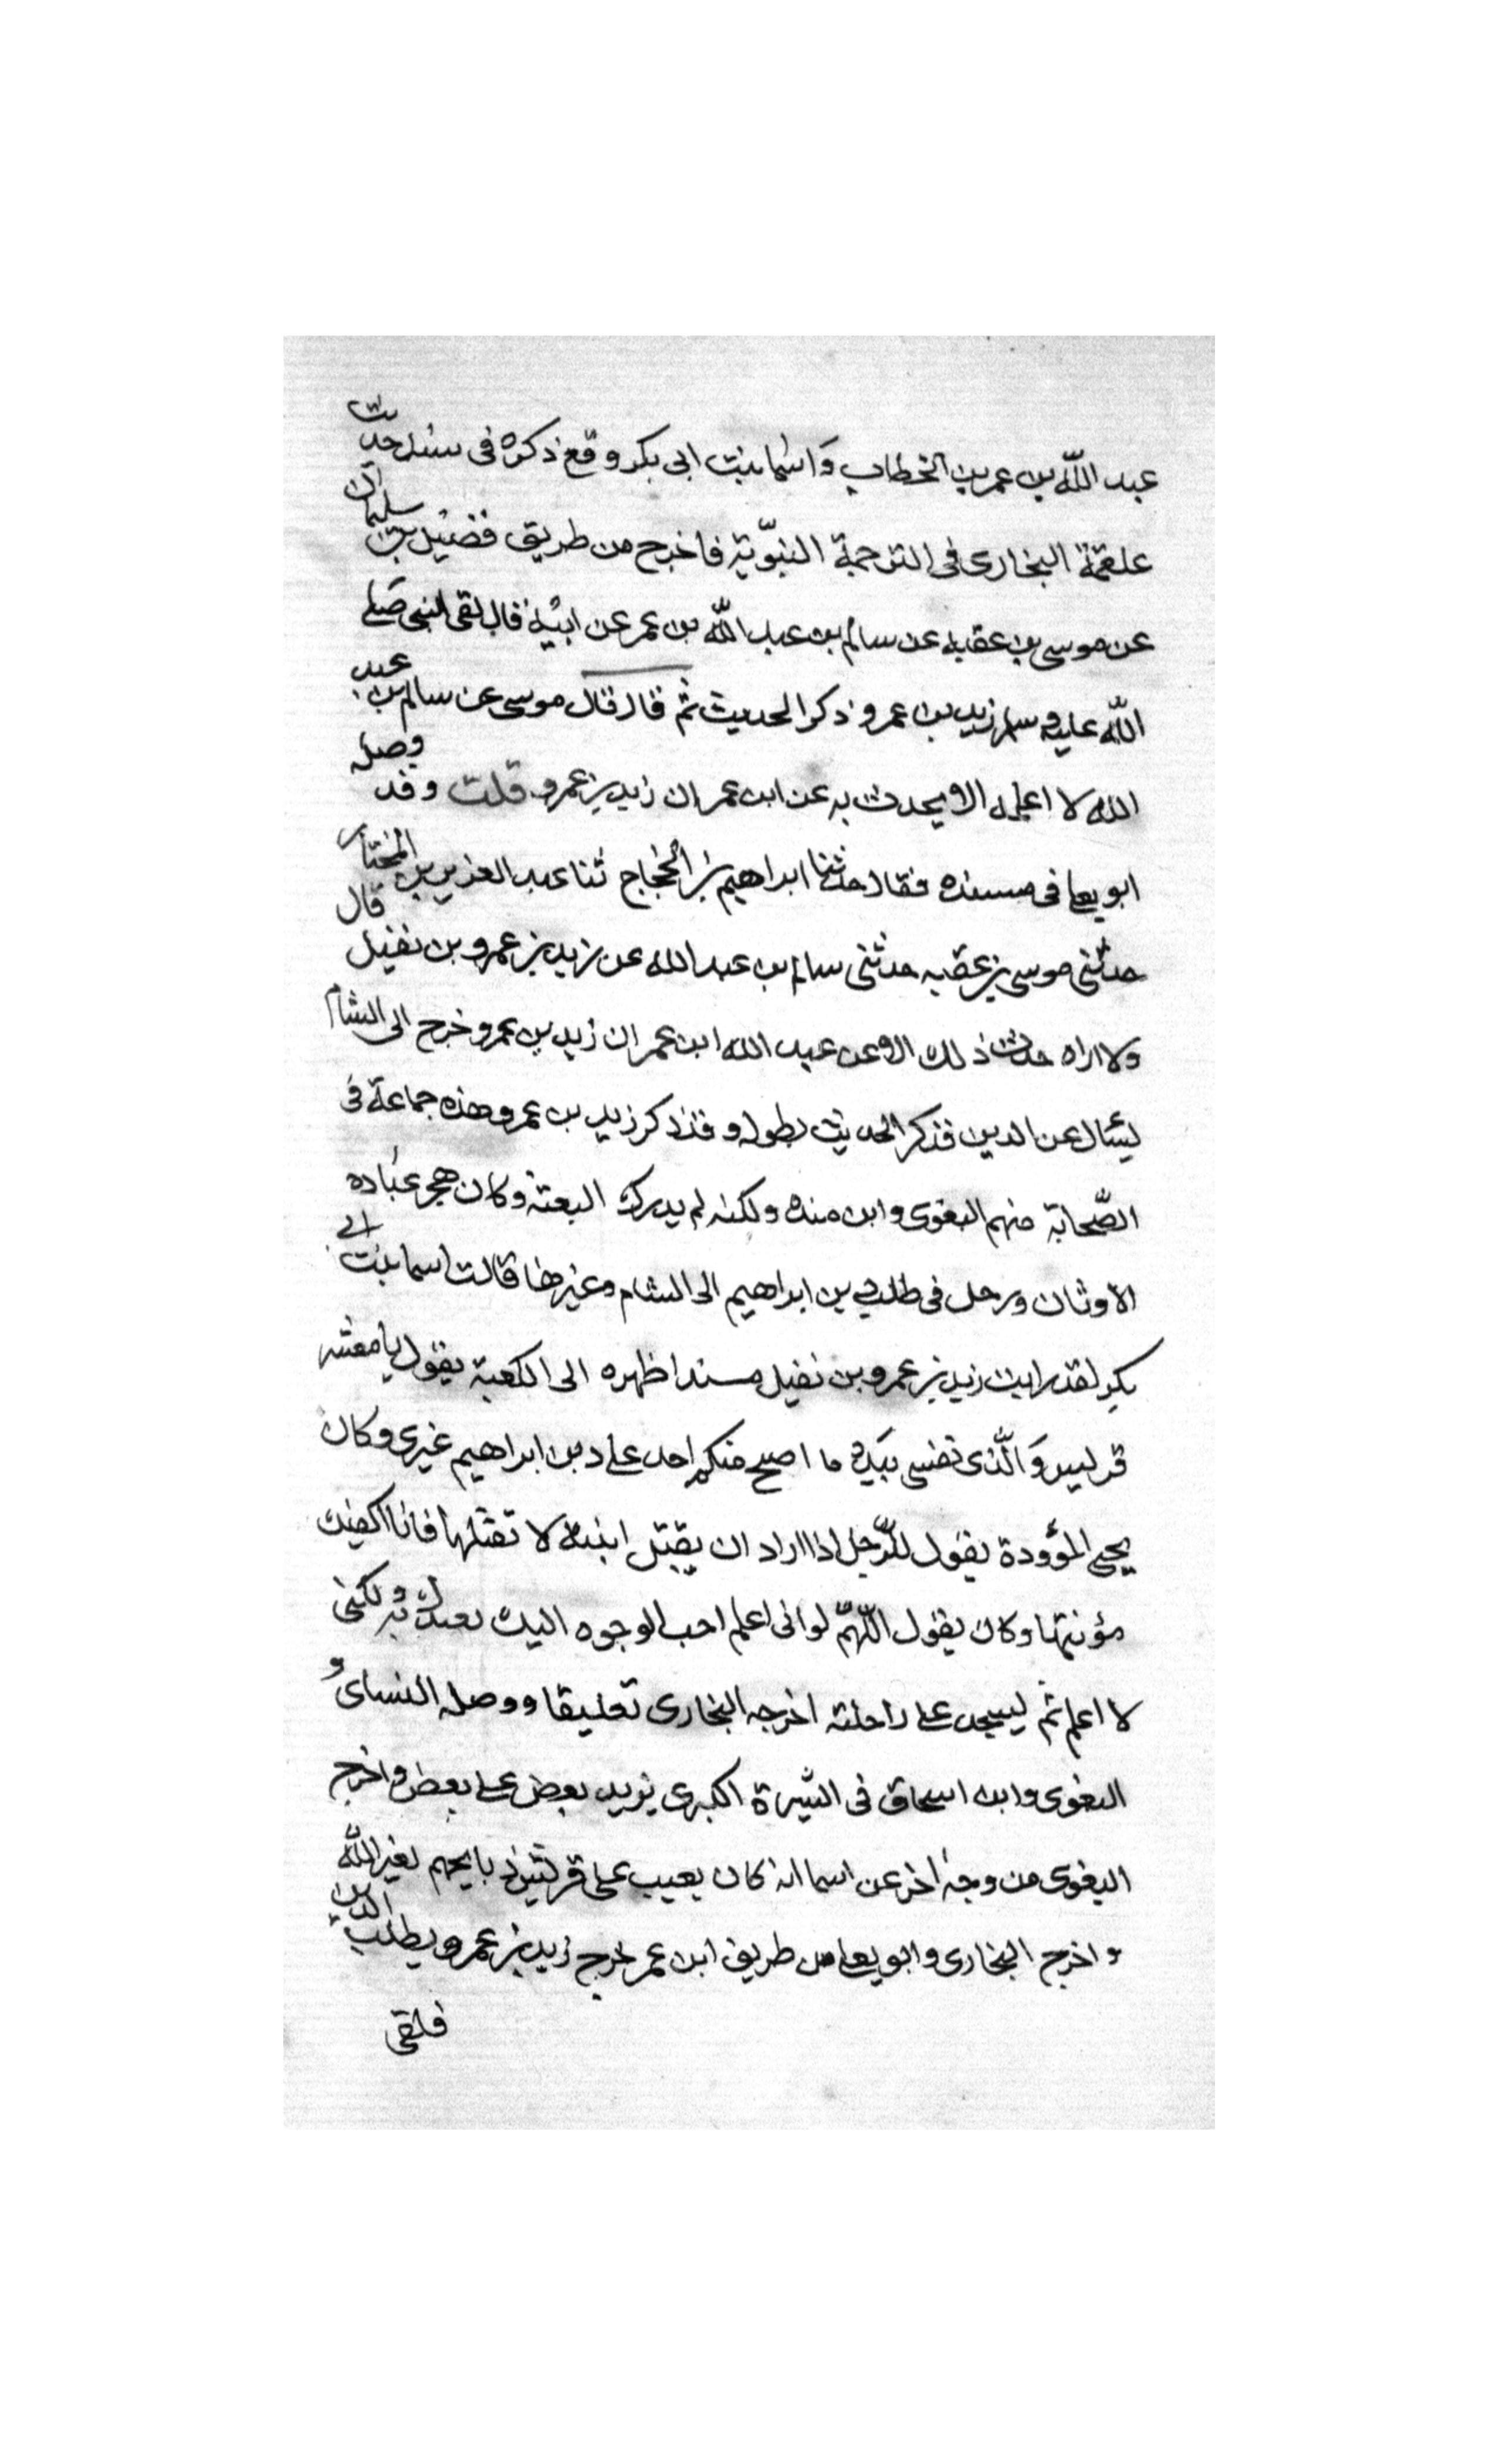 عبد الله بن عمر بن الخطاب وَاسْما بنت ابى بكر وقع ذكره فى سند حديث
علقمة البخارى فى الترجمة النبوّية فاخرج من طريق فضيل بن سليمان
عن موسى بن عقبه عن سالم بن عبد اللّه بن عمر عن ابيه قال لقى النبى صلى
اللّه عليه وسلم زيد بن عمرو ذكر الحديث ثم قال قال موسى عن سالم بن عبد
الله لا اعلمه الا يحدث به عن ابن عمر ان زيد بن عمرو قلت وقد وصله
ابو يعلى فى مسنده فقال حدثنا ابراهيم بن الحجاج ثنا عبد العزيز بن المختار
حدثنى موسى بن عقبه حدثنى سالم بن عبد الله عن زيد بن عمرو بن نفيل قال
ولا اراه حدث ذلك الا عن عبد الله ابن عمر ان زيد بن عمرو خرج الى الشام
ليسال عن الدين فذكر الحديث بطوله وقد ذكر زيد بن عمرو هذه جماعة فى
الصّحابة منهم البغوى وابن منده ولكنه لم يدرك البعثة وكان هجر عبادة
الاوثان ورحل فى طلب دين ابراهيم الى الشام وغيرها قالت اسما بنت ابى
بكر لقد رايت زيد بن عمرو بن نفيل مسندا ظهره الى الكعبة يقول يا معشر
قريش وَالّذى نفسى بيده ما اصبح منكم احد على دين ابراهيم غيرى وكان
يحيى المؤودة يقول للرّجل اذا اراد ان يقتل ابنته لا تقتلها فانا اكفيك
مؤنتها وكان يقول اللّهمّ لو انى اعلم احب الوجوه اليك لعبدتك به ولكنى
لا اعلم ثم يسجد على راحلته اخرجه البخارى تعليقا ووصله النساى و
البغوى وابن اسحاق فى السّيرة الكبرى يزيد بعض على بعض واخرج
البغوى من وجه اخر عن اسما انه كان يعيب على قريش ذبايحهم لغير اللّه
واخرج البخارى وابو يعلى من طريق ابن عمر خرج زيد بن عمرو يطلب الدين
فلقى